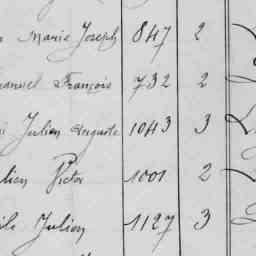 Marie Joseph 847 2
François 732 2
Julien Auguste 1043 3
Victor 1001 2
Julien 1127 3